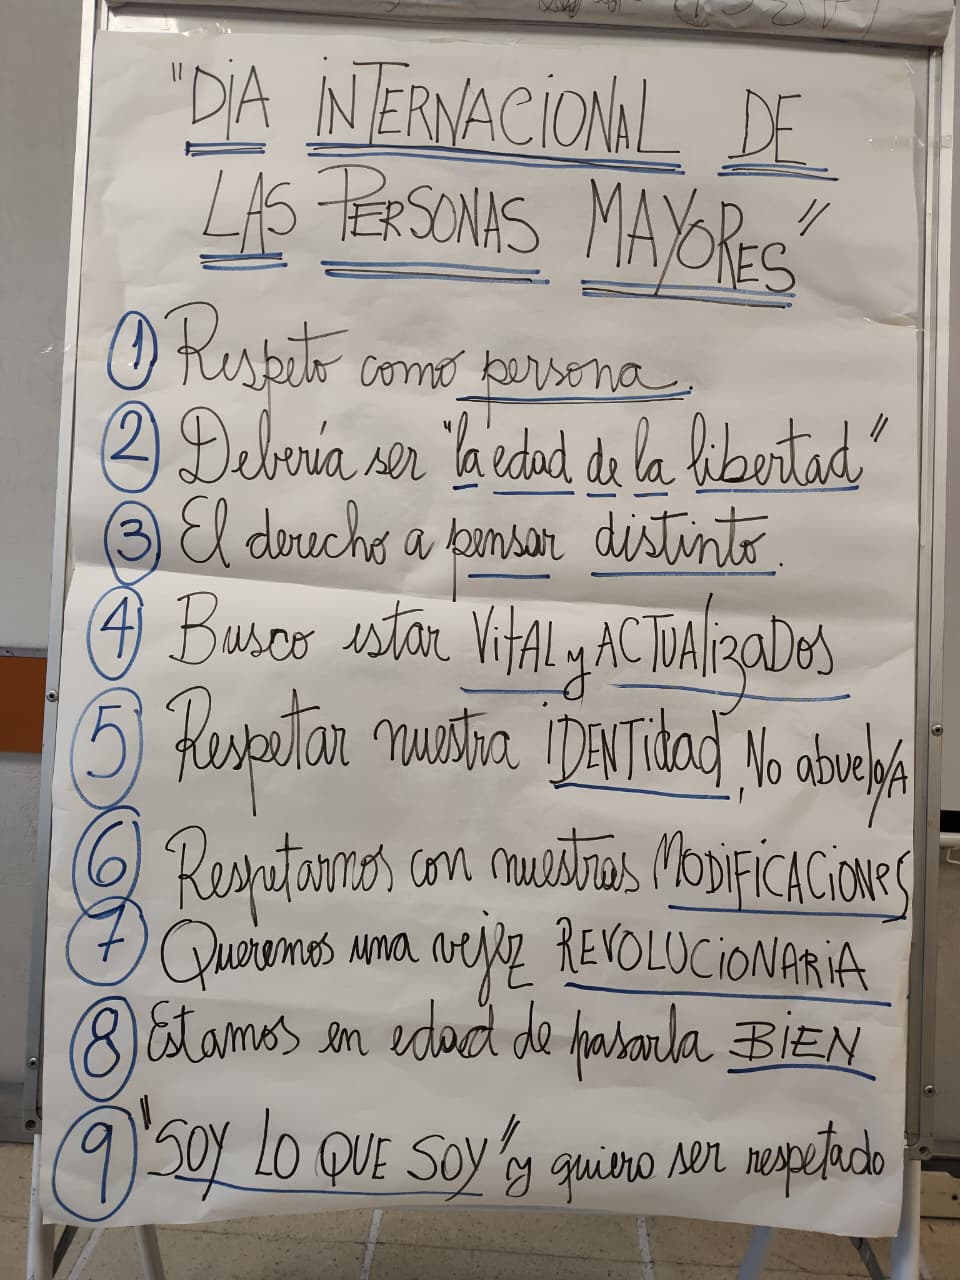 "DíA iNTERNACiONAL DE
LAS PERSONAS MAYORES"
1 Respeto como persona.
2 Debería ser "la edad de la libertad"
3 El derecho a pensar distinto.
4 Busco estar ViTAL y ACTUAlizaDOS
5 Respetar nuestra iDENTidad, No abuelo/A
6 Respetarnos con nuestras MODiFiCACiONES
7 Queremos una vejez REVOLUCiONARiA
8 Estamos en edad de pasarla BiEN
9 "SOY LO QUE SOY" y quiero ser respetado